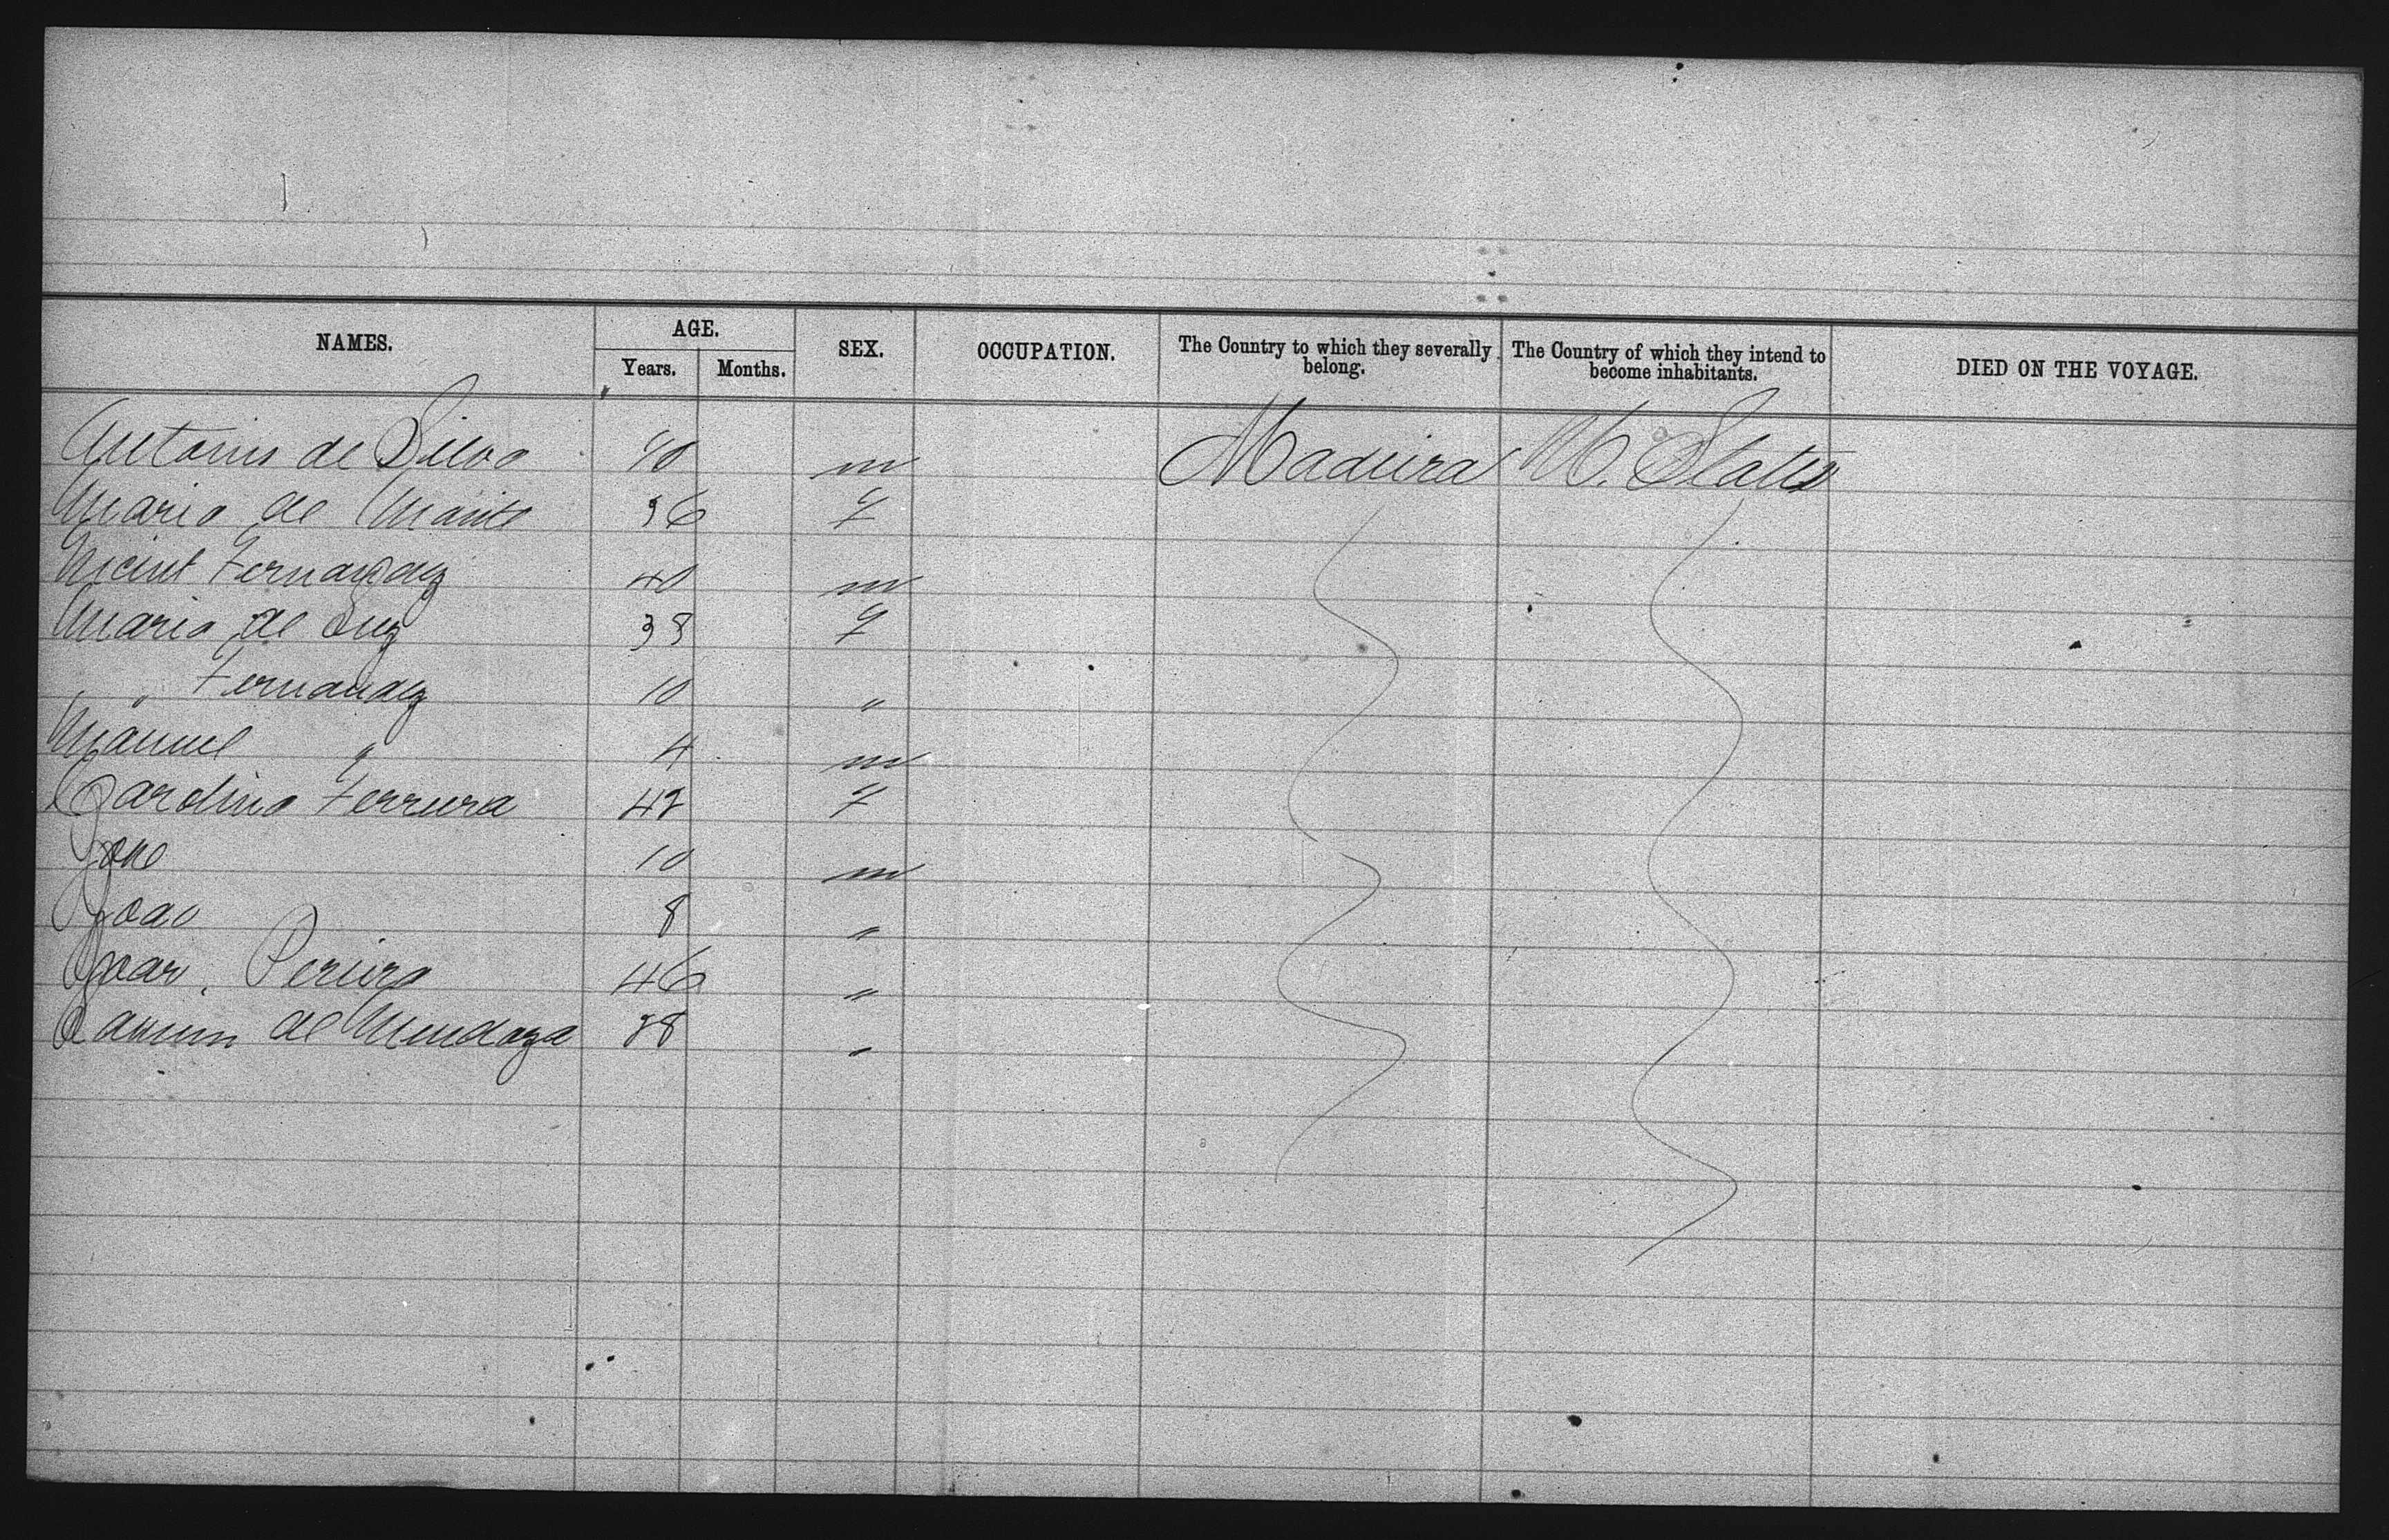 NAMES. AGE. SEX. OCCUPATION. The Country to which they severally belong. The Country of which they intend to become inhabitants. DIED ON THE VOYAGE.
Years. Months.
Antonio de Silva 40 m Madeira U. States
Maria de Monte 36 f
Vicint Fernandez 40 m
Maria de Luz 38 f
" " Fernandez 10 "
Manuel " 4 m
Carolina Ferreira 42 f
Jose 10 m
Joao 8 "
Joao Pereira 46 "
Ramon de Mendoza 28 "